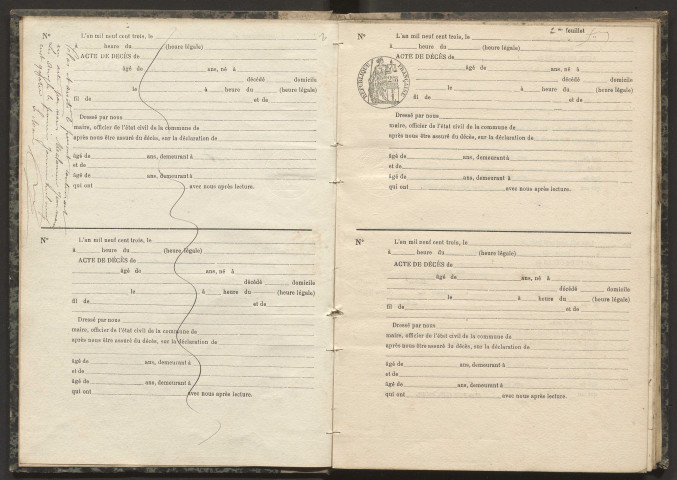 N° L'an mil neuf cent trois, le
à heure du (heure légale)
ACTE DE DÉCÈS de
âgé de ans, né à
décédé domicile
le à heure du (heure légale)
fil de et de
Dressé par nous
maire, officier de l'état civil de la commune de
après nous être assuré du décès, sur la déclaration de
âgé de ans, demeurant à
et de
âgé de ans, demeurant à
qui ont avec nous après lecture.
N° L'an mil neuf cent trois, le
à heure du (heure légale)
ACTE DE DÉCÈS de
âgé de ans, né à
décédé domicile
le à heure du (heure légale)
fil de et de
Dressé par nous
maire, officier de l'état civil de la commune de
après nous être assuré du décès, sur la déclaration de
âgé de ans, demeurant à
et de
âgé de ans, demeurant à
qui ont avec nous après lecture.
2me feuillet
N° L'an mil neuf cent trois, le
à heure du (heure légale)
ACTE DE DÉCÈS de
REPUBLIQUE FRANÇAISE
âgé de ans, né à
décédé domicile
le à heure du (heure légale)
fil de et de
Dressé par nous
maire, officier de l'état civil de la commune de
après nous être assuré du décès, sur la déclaration de
âgé de ans, demeurant à
et de
âgé de ans, demeurant à
qui ont avec nous après lecture.
N° L'an mil neuf cent trois, le
à heure du (heure légale)
ACTE DE DÉCÈS de
âgé de ans, né à
décédé domicile
le à heure du (heure légale)
fil de et de
Dressé par nous
maire, officier de l'état civil de la commune de
après nous être assuré du décès, sur la déclaration de
âgé de ans, demeurant à
et de
âgé de ans, demeurant à
qui ont avec nous après lecture.